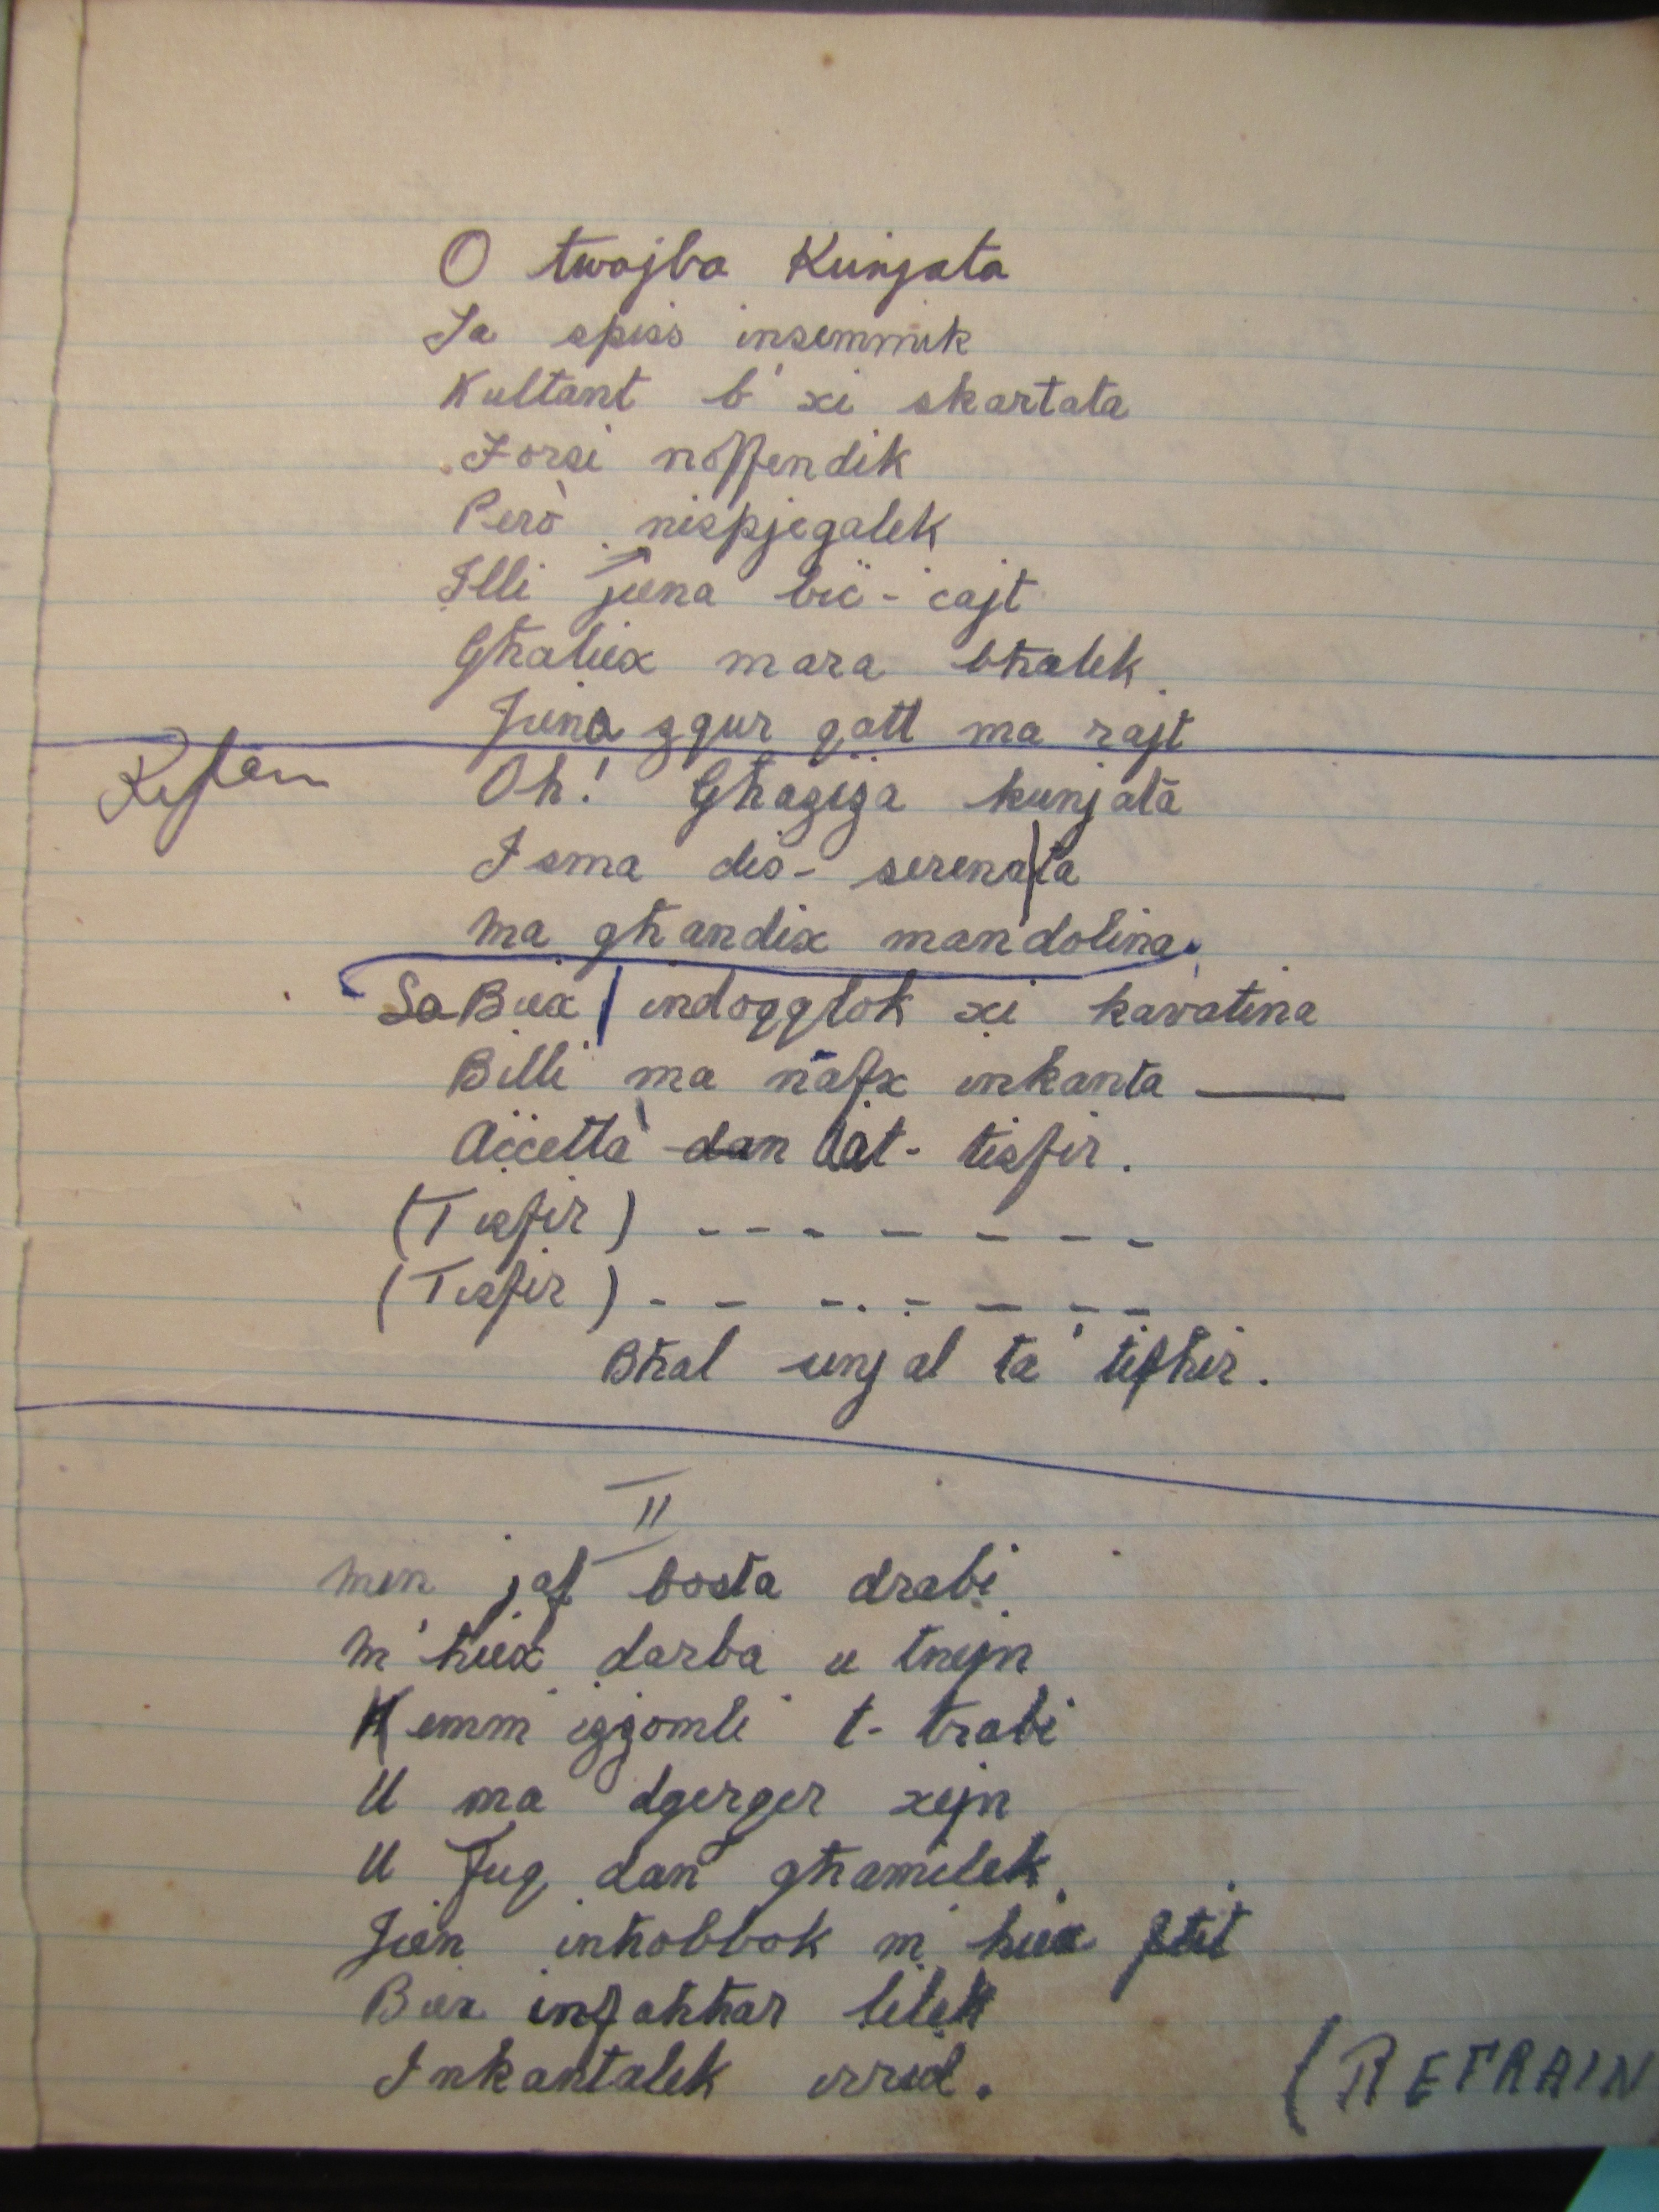 O twajba Kunjata
Ta spiss insemmik
Kultant b'xi skartata
Forsi noffendik
Però nispjegalek
Illi jiena biċ-ċajt
Għaliex mara bħalek
Jiena żgur qatt ma rajt
Oh! Għażiża kunjata
Isma dis-serenata
Ma għandix mandolina.
Sa Biex indoqqlok xi kavatina
Billi ma nafx inkanta
Aċċetta dan lat-tisfir.
(Tisfir) - - - - - - -
(Tisfir) - - - - - - -
Bħal sinjal ta' tifħir.
II
Min jaf bosta drabi
M'hiex darba u tnejn
Kemm iżżomli t-trabi
U ma dgerger xejn
U Fuq dan għamilek
Jien inħobbok m'hiex ftit
Biex infaħħar lilek
Inkantalek irrid.
(REFRAIN